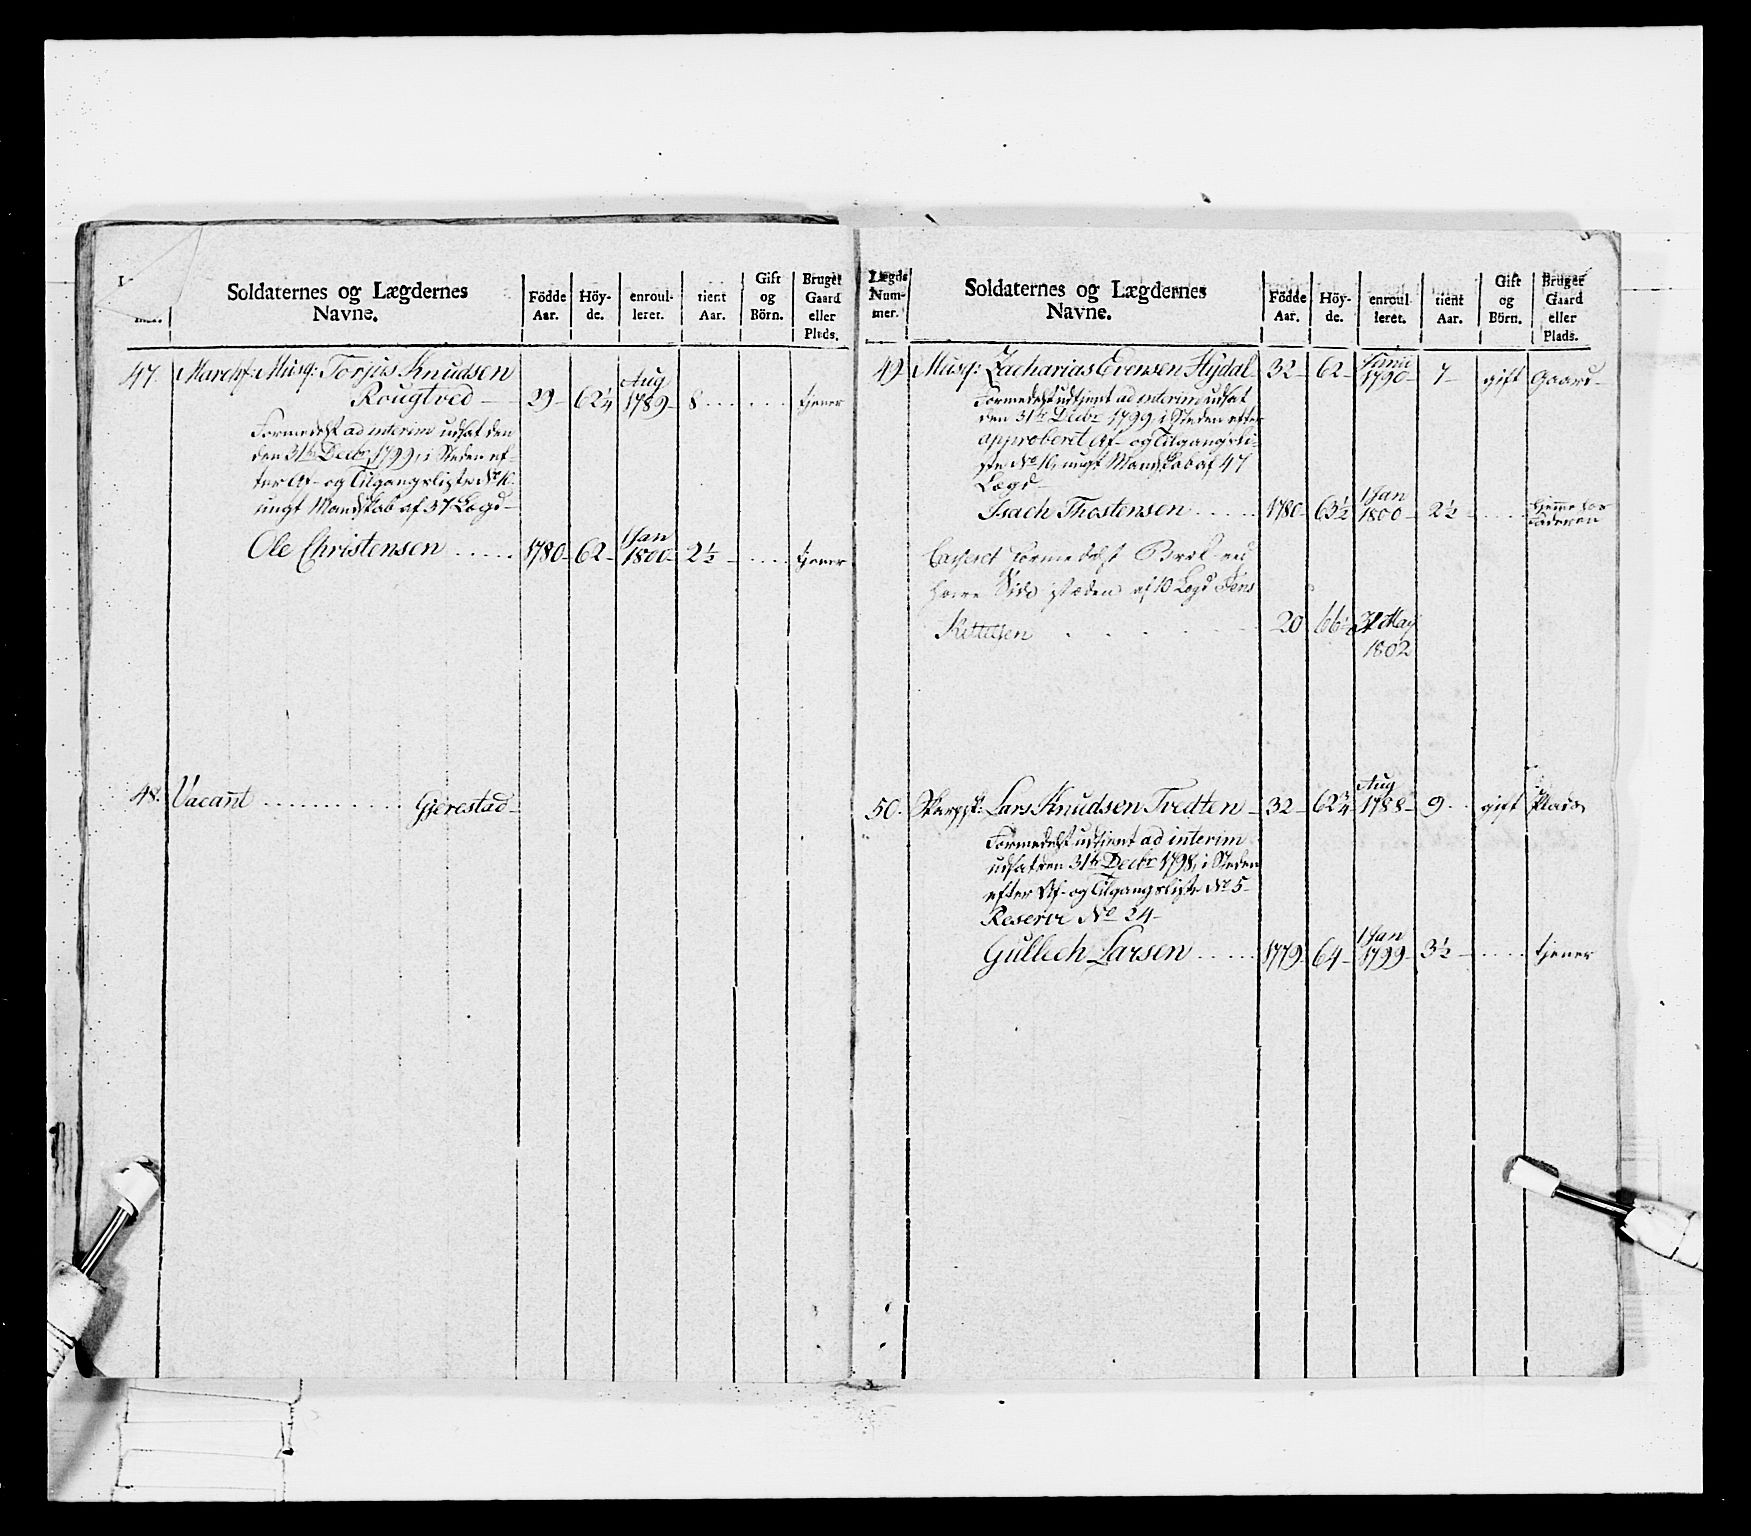 Soldaternes og Lægdernes
Navne.
Födde
Aar.
Höy-
de.
enroul-
leret.
tient
Aar.
Gift
og
Börn.
Bruger
Gaard
eller
Plads.
47. Marchf: Musq: Torjus Knudsen
Rougtved — 29 – 62¼ Aug 1789 – 8 . . . . . . tjener
Formedelst ad interim udsat den
den 31te Decbr 1799, i Steden ef-
ter Af- og Tilgangsliste No 10.
ungt Mandskab af 37 Lægd –
Ole Christensen . . . . . 1780 – 62 – 1 Jan 1800 – 2½ – . . . . tjener
48. Vacant . . . . . . . . . . . . Gjerestad –
Lægds
Num-
mer.
Soldaternes og Lægdernes
Navne.
Födde
Aar.
Höy-
de.
enroul
leret.
tient
Aar.
Gift
og
Börn.
Bruger
Gaard
eller
Plads.
49 Musq: Zacharias Evensen Hydal 32 – 62 – Junii 1790 – 7 – gift Gaard –
Formedelst udtjent ad interim udsat
den 31te Decbr 1799, i Steden efter
approberet Af- og Tilgangsli-
ste No 10, ungt Mandskab af 47
Lægd –
Isach Thostensen . . . . . 1780 – 63½ 1 Jan 1800 – 2½ – . . . . hjemme hos Faderen
Casseret Formedelst Brok ved
høire Side i stæden af 10 Legd Jens
Kittelsen . . . . . 20 66½ 31 May
1802
50. Skarpsk: Lars Knudsen Tvedten – 32 – 62¾ Aug 1788 – 9 . . gift Plads
Formedelst udtjent ad interim
udsat den 31te Decbr 1798, i Steden
efter Af- og Tilgangsliste No 5 –
Reserve No 24 –
Gullech Larsen . . . . . 1779 – 64 – 1 Jan 1799 – 3½ – . . . . tjener